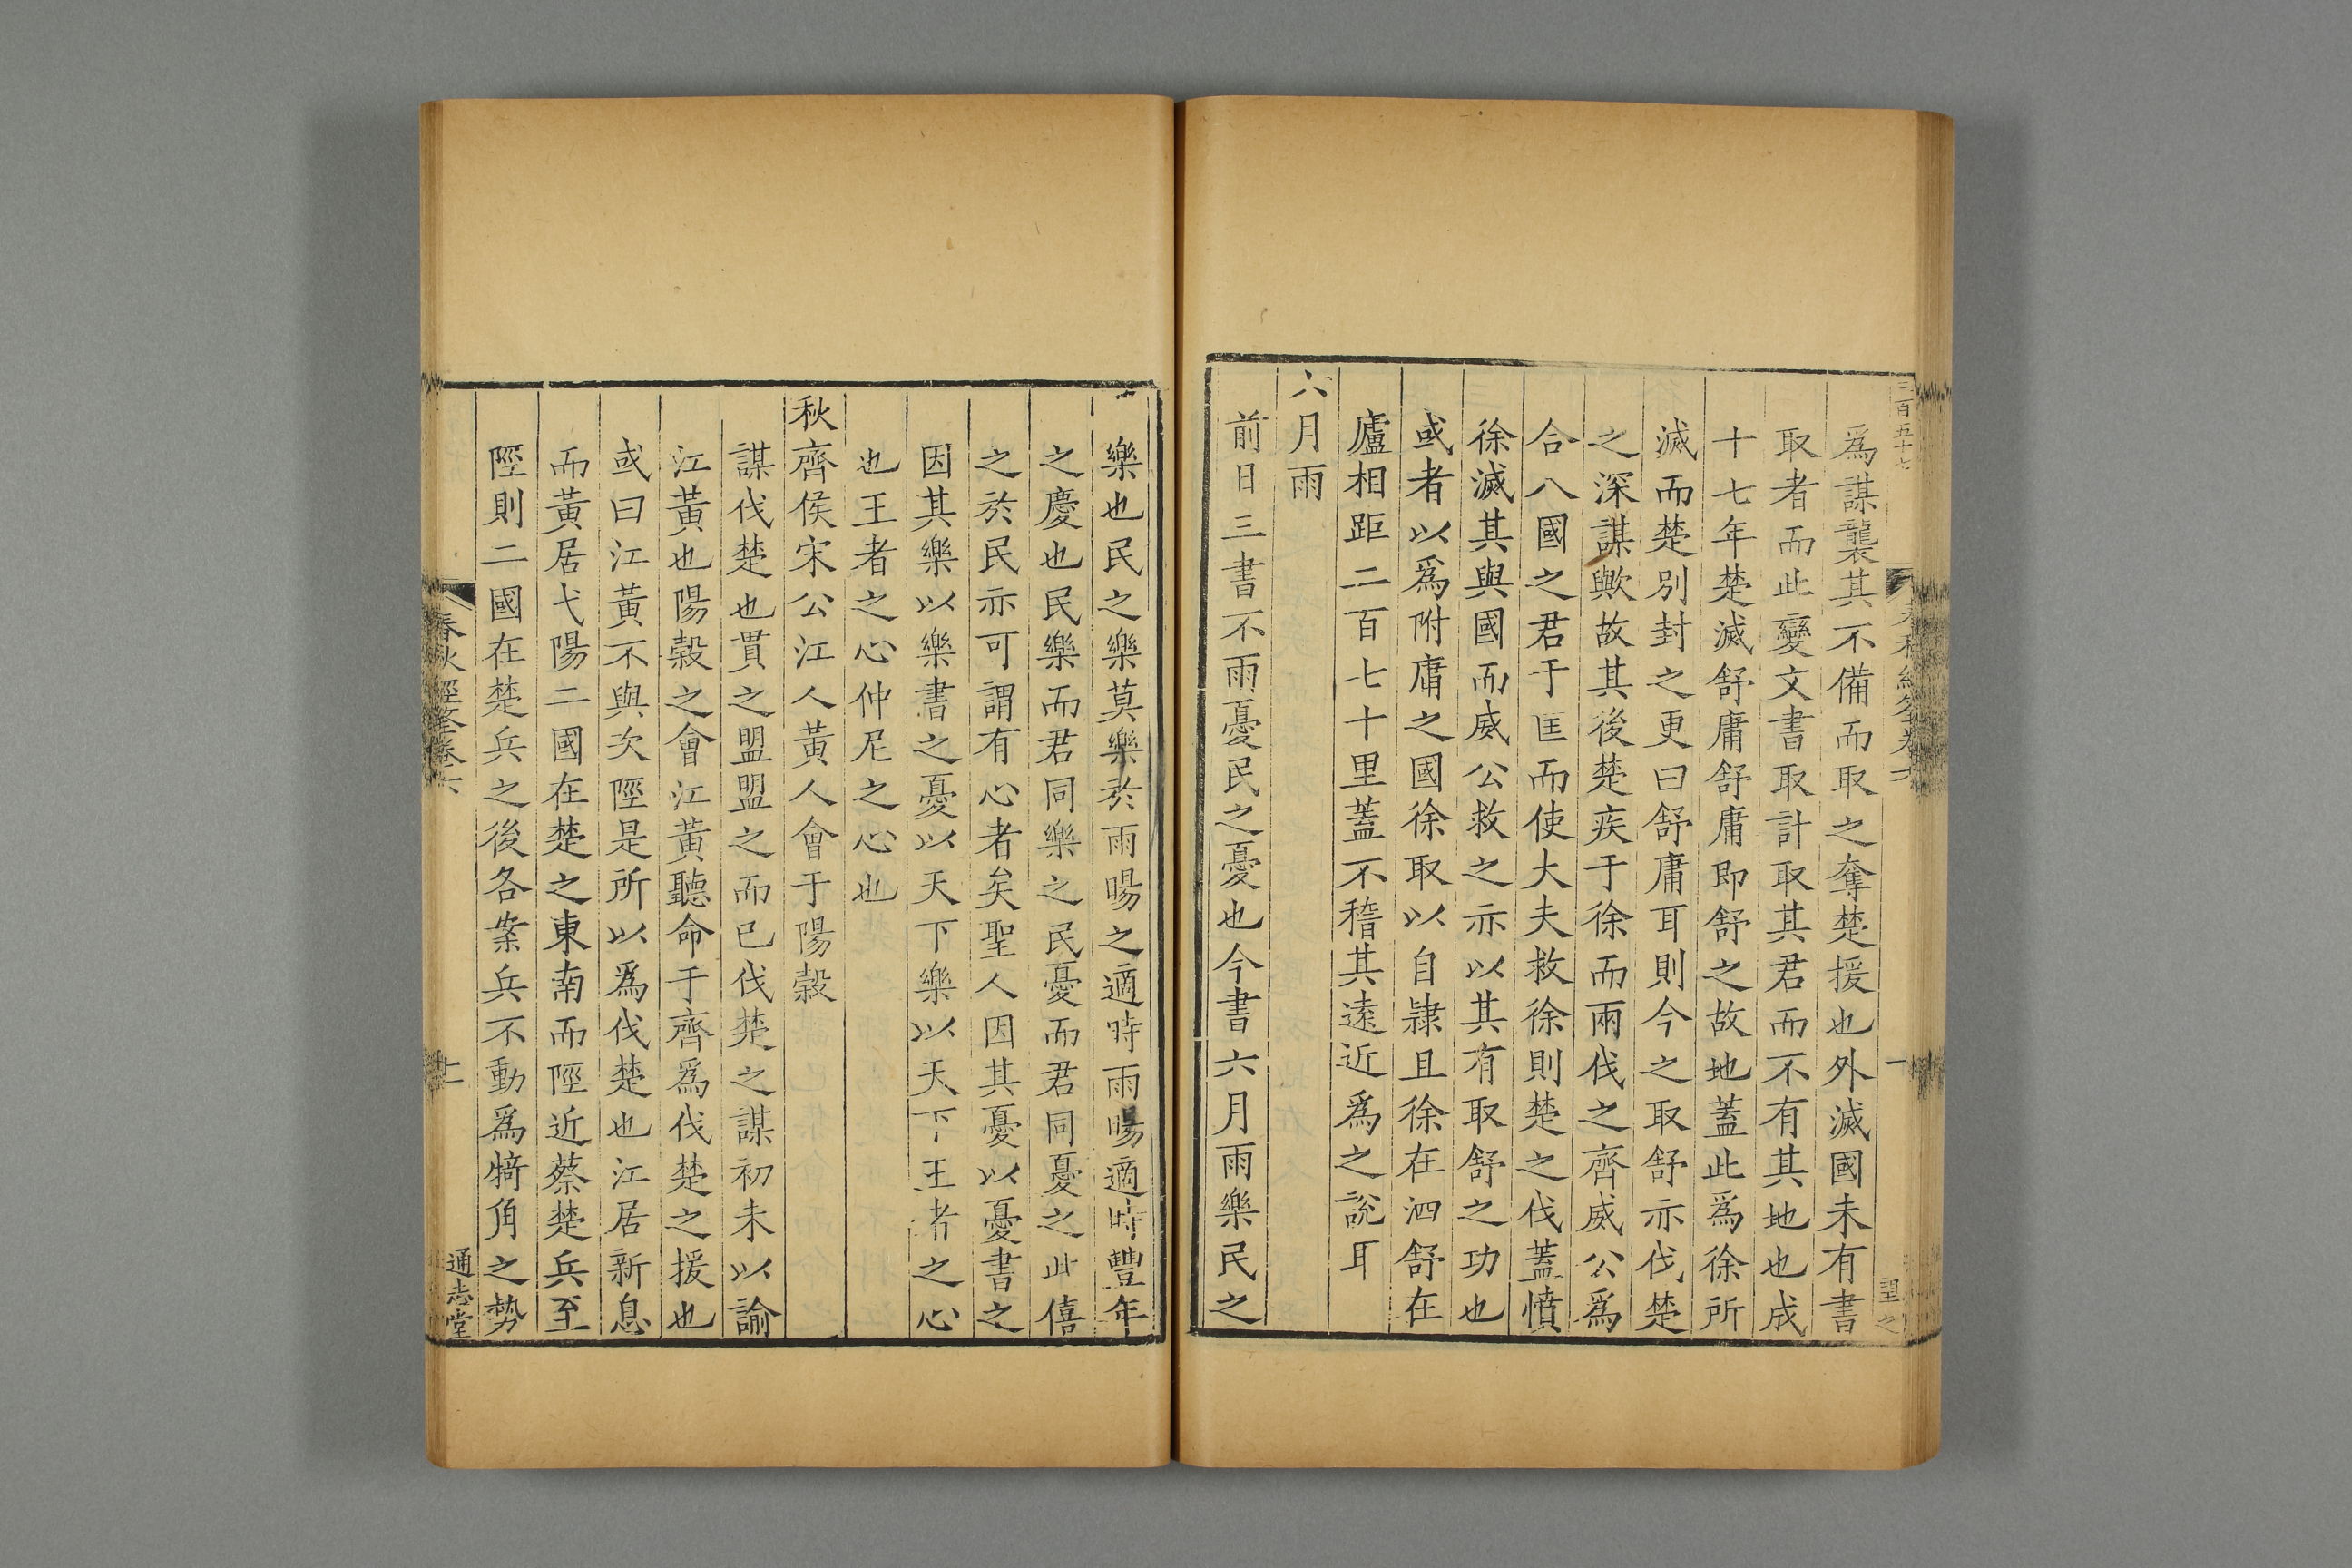 三百五十七
爲謀襲其不備而取之奪楚援也外滅國未有書
取者而此變文書取計取其君而不有其地也成
十七年楚滅舒庸舒庸即舒之故地蓋此爲徐所
滅而楚別封之更曰舒庸耳則今之取舒亦伐楚
之深謀歟故其後楚疾于徐而兩伐之齊威公爲
合八國之君于匡而使大夫救徐則楚之伐蓋憤
徐滅其與國而威公救之亦以其有取舒之功也
或者以爲附庸之國徐取以自隷且徐在泗舒在
廬相距二百七十里蓋不稽其遠近爲之說耳
六月雨
前日三書不雨憂民之憂也今書六月雨樂民之
樂也民之樂莫樂於雨暘之適時雨暘適時豐年
之慶也民樂而君同樂之民憂而君同憂之此僖
之於民亦可謂有心者矣聖人因其憂以憂書之
因其樂以樂書之憂以天下樂以天下王者之心
也王者之心仲尼之心也
秋齊侯宋公江人黃人會于陽穀
謀伐楚也貫之盟盟之而已伐楚之謀初未以諭
江黃也陽穀之會江黃聽命于齊爲伐楚之援也
或曰江黃不與次陘是所以爲伐楚也江居新息
而黃居弋陽二國在楚之東南而陘近蔡楚兵至
陘則二國在楚兵之後各案兵不動爲犄角之勢
春秋經筌卷六
十一
通志堂